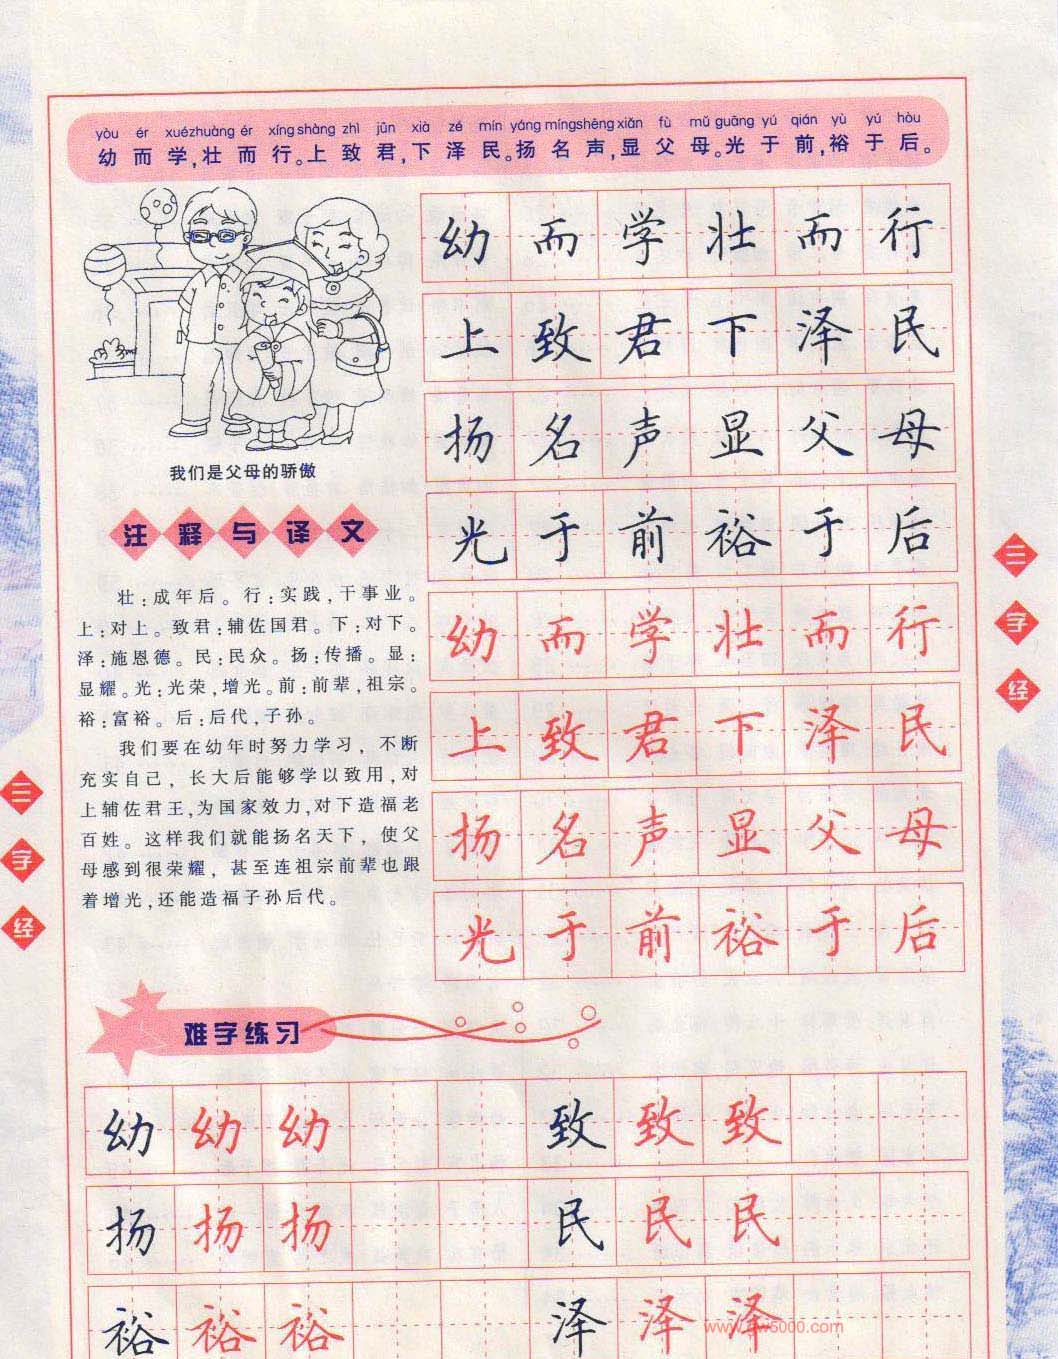 yòu ér xué zhuàng ér xíng shàng zhì jūn xià zé mín yáng míng shēng xiǎn fù mǔ guāng yú qián yù yú hòu
幼而学,壮而行。上致君,下泽民。扬名声,显父母。光于前,裕于后。
幼而学壮而行
上致君下泽民
扬名声显父母
光于前裕于后
幼而学壮而行
上致君下泽民
扬名声显父母
光于前裕于后
我们是父母的骄傲
注释与译文
壮:成年后。行:实践,干事业。
上:对上。致君:辅佐国君。下:对下。
泽:施恩德。民:民众。扬:传播。显:
显耀。光:光荣,增光。前:前辈,祖宗。
裕:富裕。后:后代,子孙。
我们要在幼年时努力学习,不断
充实自己,长大后能够学以致用,对
上辅佐君王,为国家效力,对下造福老
百姓。这样我们就能扬名天下,使父
母感到很荣耀,甚至连祖宗前辈也跟
着增光,还能造福子孙后代。
三字经
三字经
难字练习
幼幼幼 致致致
扬扬扬 民民民
裕裕裕 泽泽泽